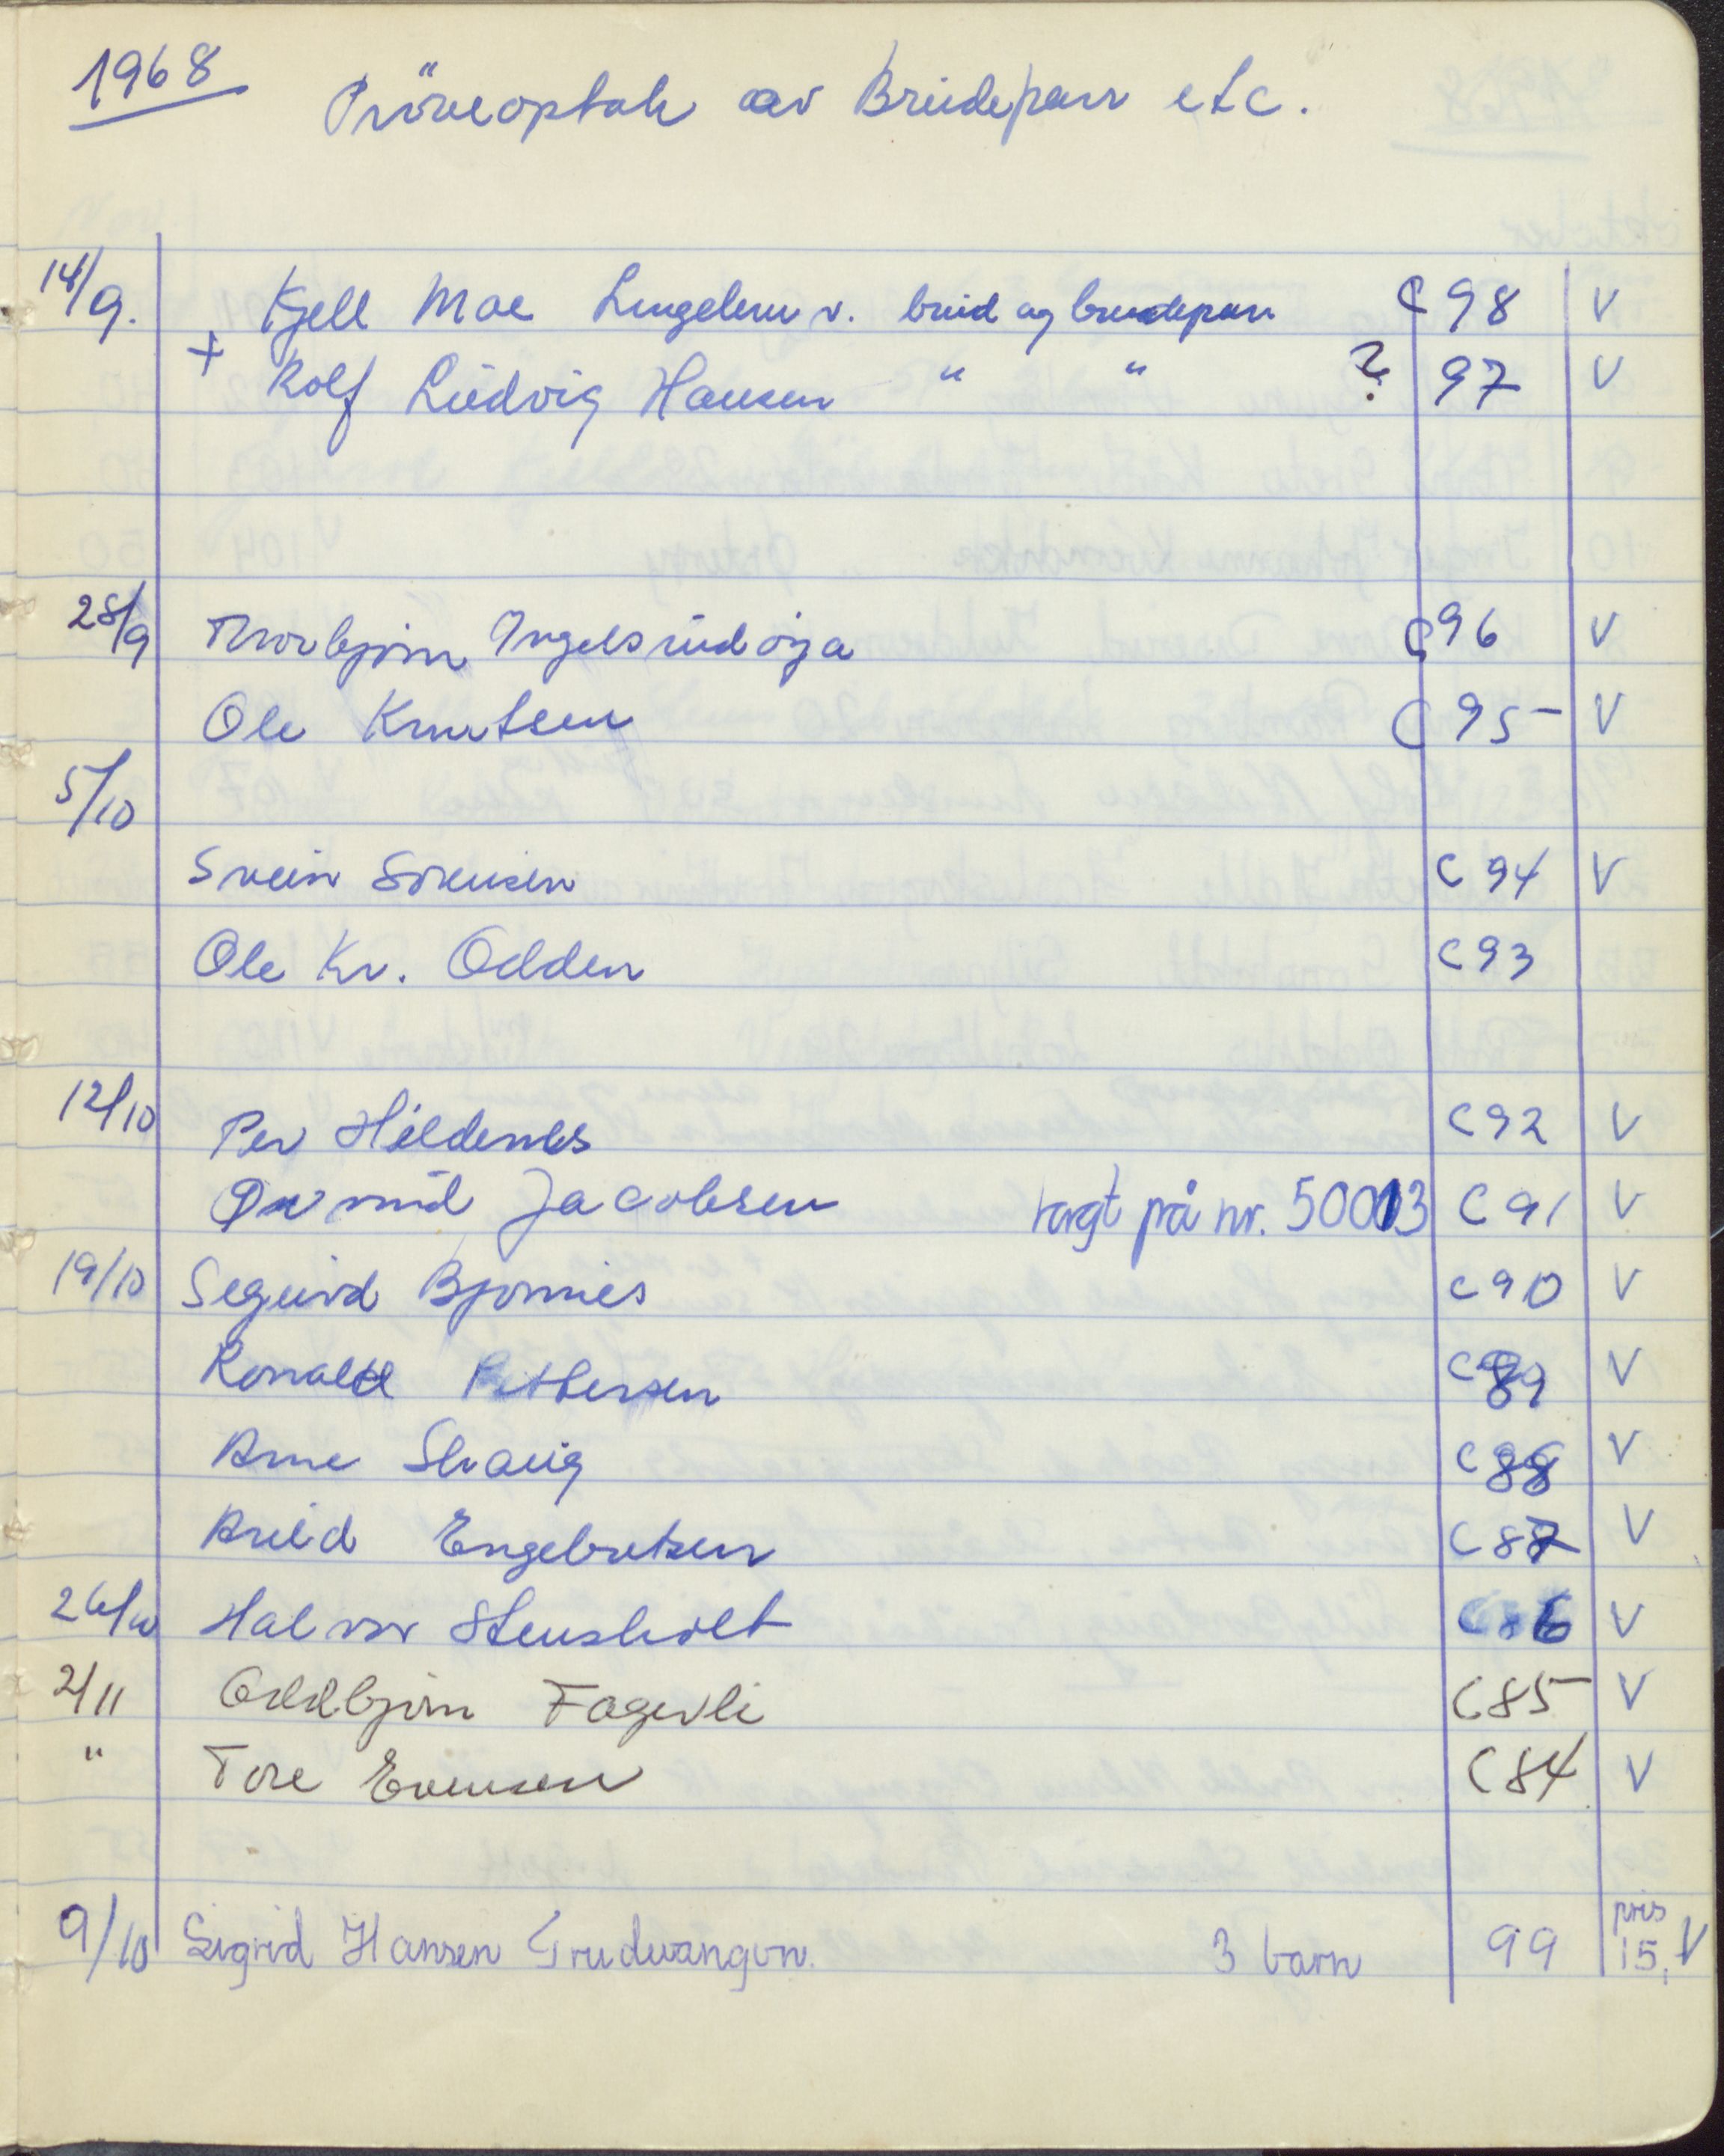 1968
Pröveoptak av Brudepar etc.
14/9. Kjell Moe Lengelem v. brud og brudepar C 98 V
+ Rolf Ludvig Hansen " " ? 97 V
28/9 Thorbjørn Ingelsrudøya C 96 V
Ole Knutsen C 95 V
5/10
Svein Sörensen C 94 V
Ole Kr. Odden C 93
12/10 Per Hildenes C 92 V
Jacobsen valgt på nr. 50013 C 91 V
19/10 Segurd Bjonnes C 90 V
Ronald Pettersen C 89 V
Arne Skauig C 88 V
Arild Engebretsen C 87 V
26/10 Halvor Stensholt C 86 V
2/11 Oddbjørn Fagerli C 85 V
" Tore Evensen C 84 V
9/10 Sigrid Hansen Trudvangvn. 3 barn 99 pris 15, V